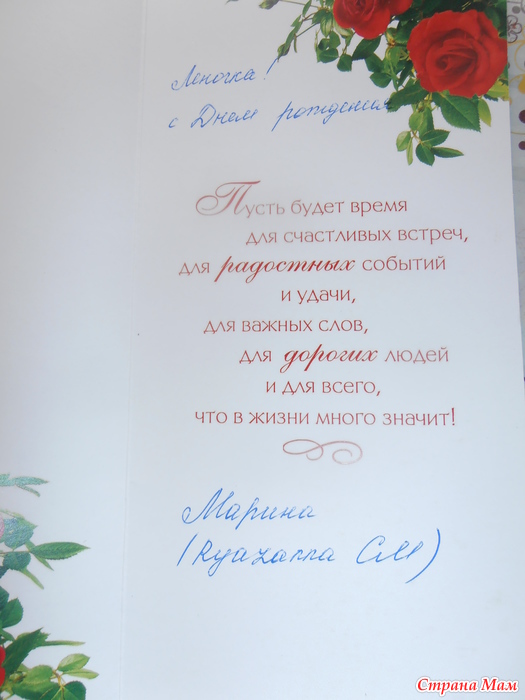 Леночка!
с Днем рождения
Пусть будет время
для счастливых встреч,
для радостных событий
и удачи,
для важных слов,
для дорогих людей
и для всего,
что в жизни много значит!
Марина
(Ryazanna СМ)
Страна Мам